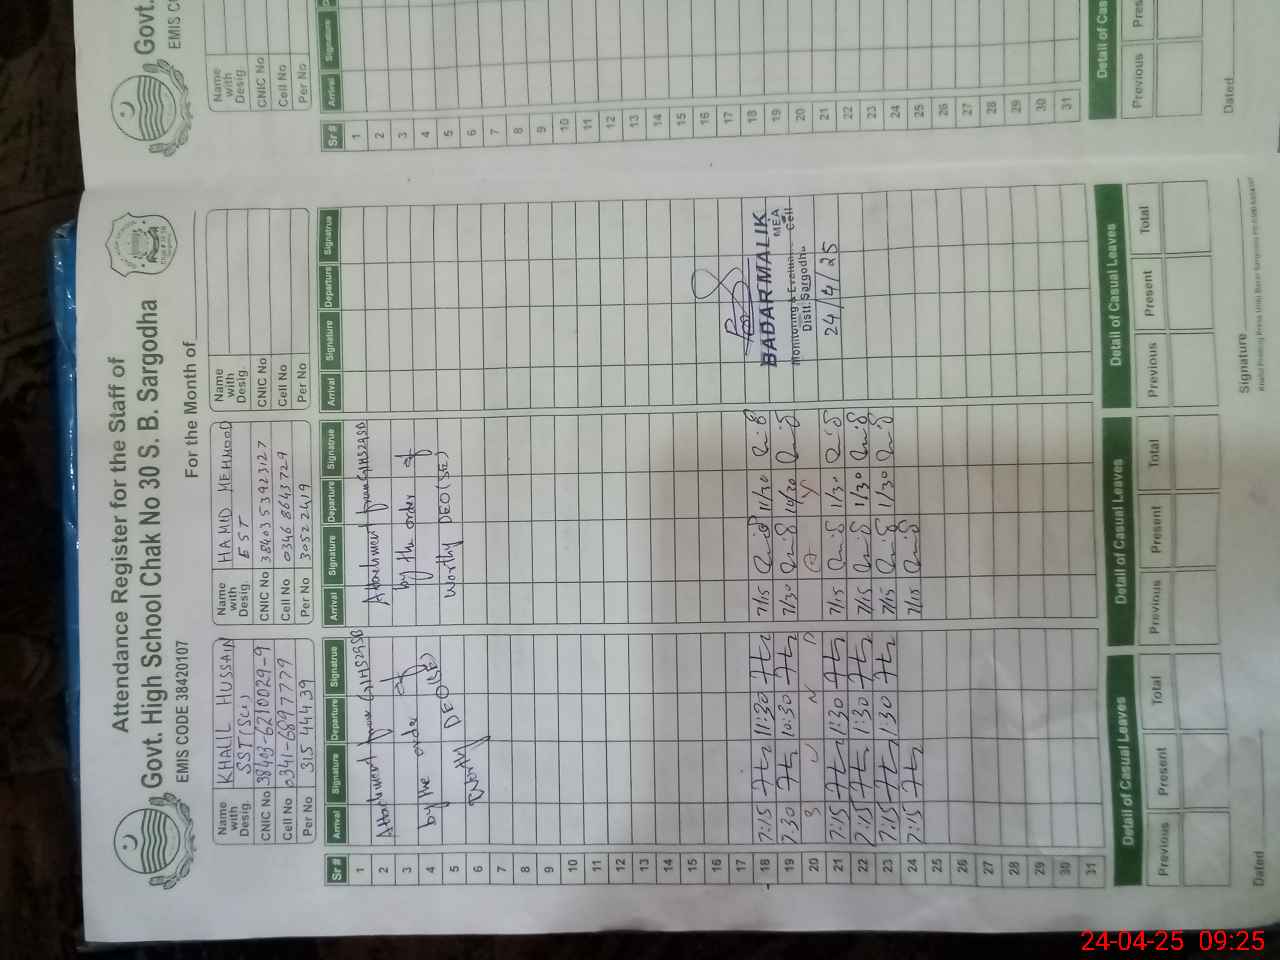 Attendance Register for the Staff of
Govt. High School Chak No 30 S. B. Sargodha
EMIS CODE 38420107
For the Month of
Name with Desig. KHALIL HUSSAIN SST(Sci)
CNIC No 38403-6210029-9
Cell No 0341-6897779
Per No 315 444 39
Name with Desig. HAMID MEHMOOD EST
CNIC No 38403 5392312 7
Cell No 0346 8643729
Per No 30522419
Name with Desig.
CNIC No
Cell No
Per No
Sr # Arrival Signature Departure Signatrue Arrival Signature Departure Signatrue Arrival Signature Departure Signatrue
1
2 Attachment from GHS29SB Attachment from GHS29SB
3 by the order of
4 by the order of
5 DEO(SE) worthy DEO(SE)
6 Worthy
7
8
9
10
11
12
13
14
15
16
17
18 7:15 11:30 7/15 11/30
19 7:30 10:30 7/30 10/30
20 S U N D A Y
21 7:15 1:30 7/15 1/30
22 7:15 1:30 7/15 1/30
23 7:15 1:30 7/15 1/30
24 7:15 7/15
25
26
27
28
29
30
31
BADAR MALIK
MEA
Monitoring & Evaluation Cell
Distt. Sargodha
24/4/25
Detail of Casual Leaves Detail of Casual Leaves Detail of Casual Leaves
Previous Present Total Previous Present Total Previous Present Total
Dated
Signature
Govt.
EMIS CODE
Name with Desig.
CNIC No
Cell No
Per No
Sr # Arrival Signature
1
2
3
4
5
6
7
8
9
10
11
12
13
14
15
16
17
18
19
20
21
22
23
24
25
26
27
28
29
30
31
Detail of Cas
Previous Pres
Dated
24-04-25 09:25